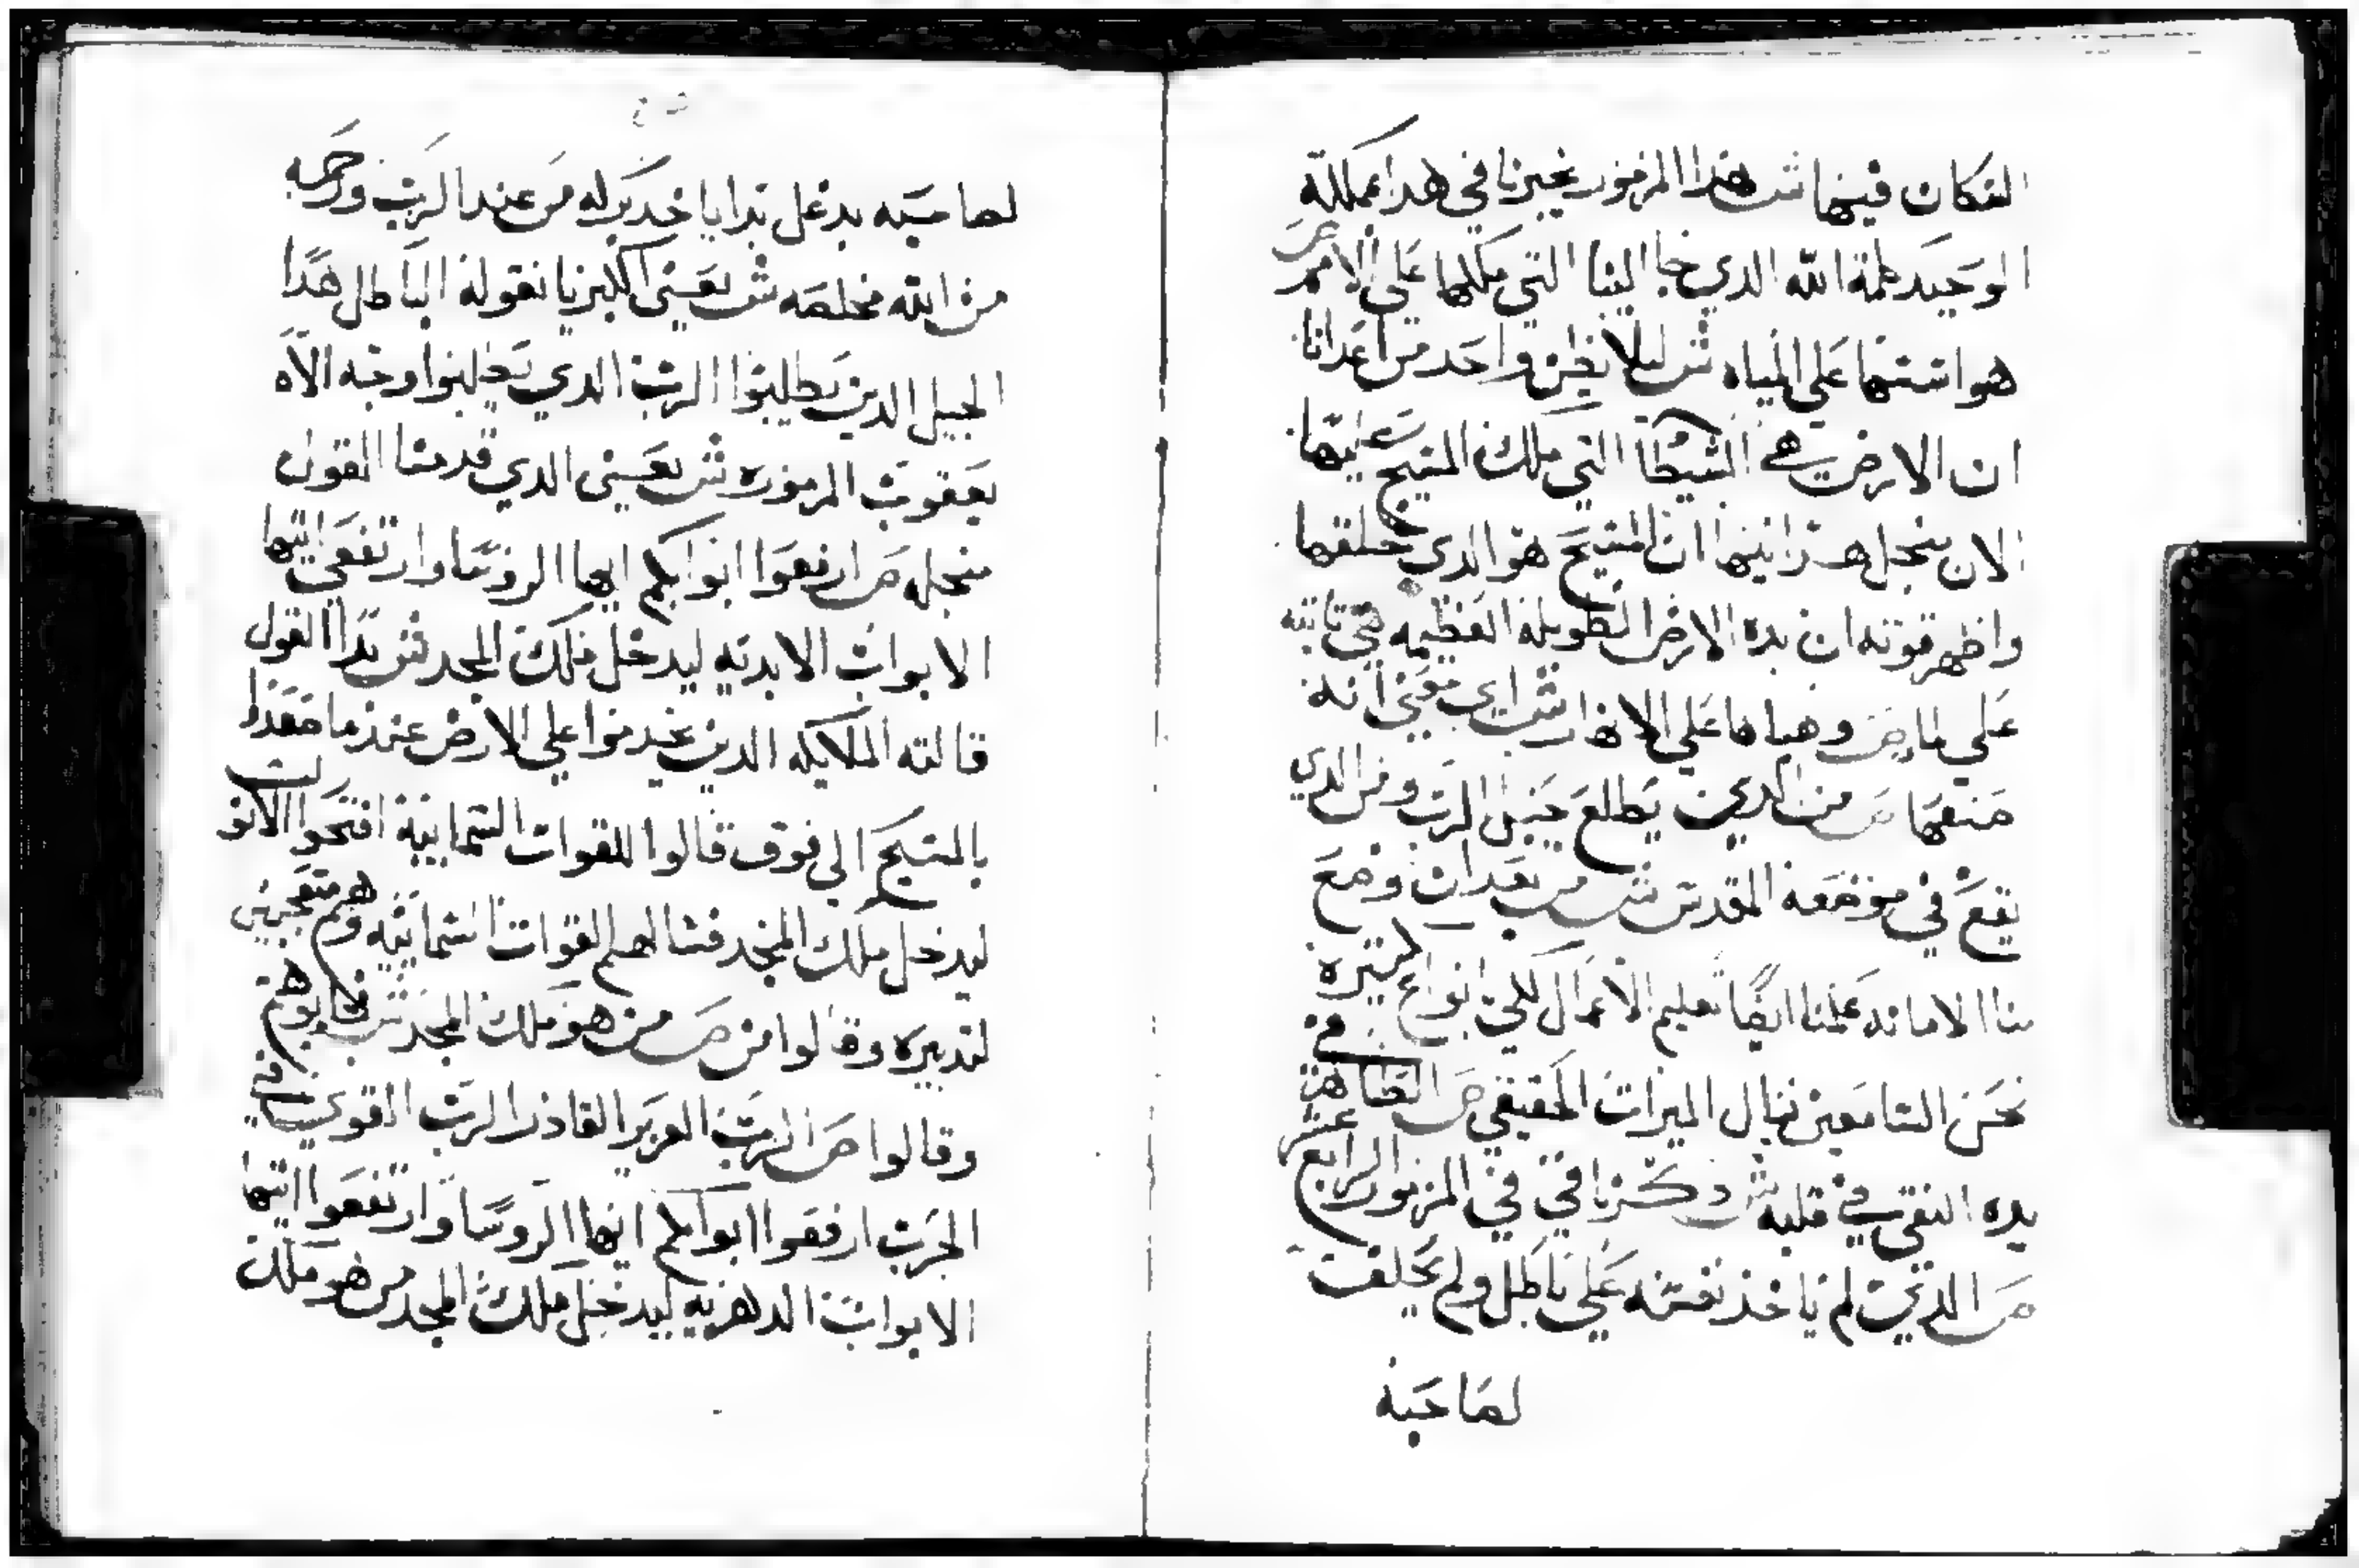 السكان فيها ش هذا المزمور يخبرنا في هدا مملكة
الوحيد كلمة الله الدي جا الينا التي ملكها علي الامم ص
هو اسسها علي المياه ش ليلا يظن واحد من اعدانا
ان الارض هي الشيطا التي ملك المسيح عليها
الان بنجل هذا نبيها ان المسيح هو الدي خلقها
واظهر قوته ان بده الارض الطويلة العظيمه هي تابته
علي الما ص وهياها علي الانهار ش اي معني انه
صنعها ص من الدي يطلع جبل الرب ومن الدي
يقع في موضعه المقدس ش من بعد ان وضع
لنا الامانه علمنا ايضا تعليم الاعمال لكي بنواع كتيره
نحن السامعين ننال الميرات الحقيقي ص الطاهر في
يده النقي في قلبه ش دكرنا في في المزمور الرابع عشر
ص الدي لم ياخذ نفسه علي باطل ولم يحلف
لصاحبه
لصاحبه بدغل بدا ياخد بركه من عند الرب ورحمه
من الله مخلصه ش يعني اكليزيا نقوله الباطل هدا
الجيل الدين يطلبوا الرب الدي يطلبوا وجه الاه
يعقوب المزموره ش يعني الدي قدمنا القول
بنجله ص ارفعوا ابوابكم ايها الروسا وارتفعي ايتها
الابواب الابديه ليدخل ملك المجد ش بدا القول
قالته الملايكه الدين يخدموا علي الارض عندما صعد الرب
بالمسيح الي فوق قالوا للقوات السماييه افتحوا الابو
ليدخل ملك المجد فسالهم القوات السماييه وهم متعجبين
لتدبيره وقالوا من ص من هو ملك المجد ش فجابوهم
وقالوا ص الرب العزيز القادر الرب القوي في
الحرب ارفعوا ابوابكم ايها الروسا وارتفعوا ايتها
الابواب الدهريه ليدخل ملك المجد من هو ملك